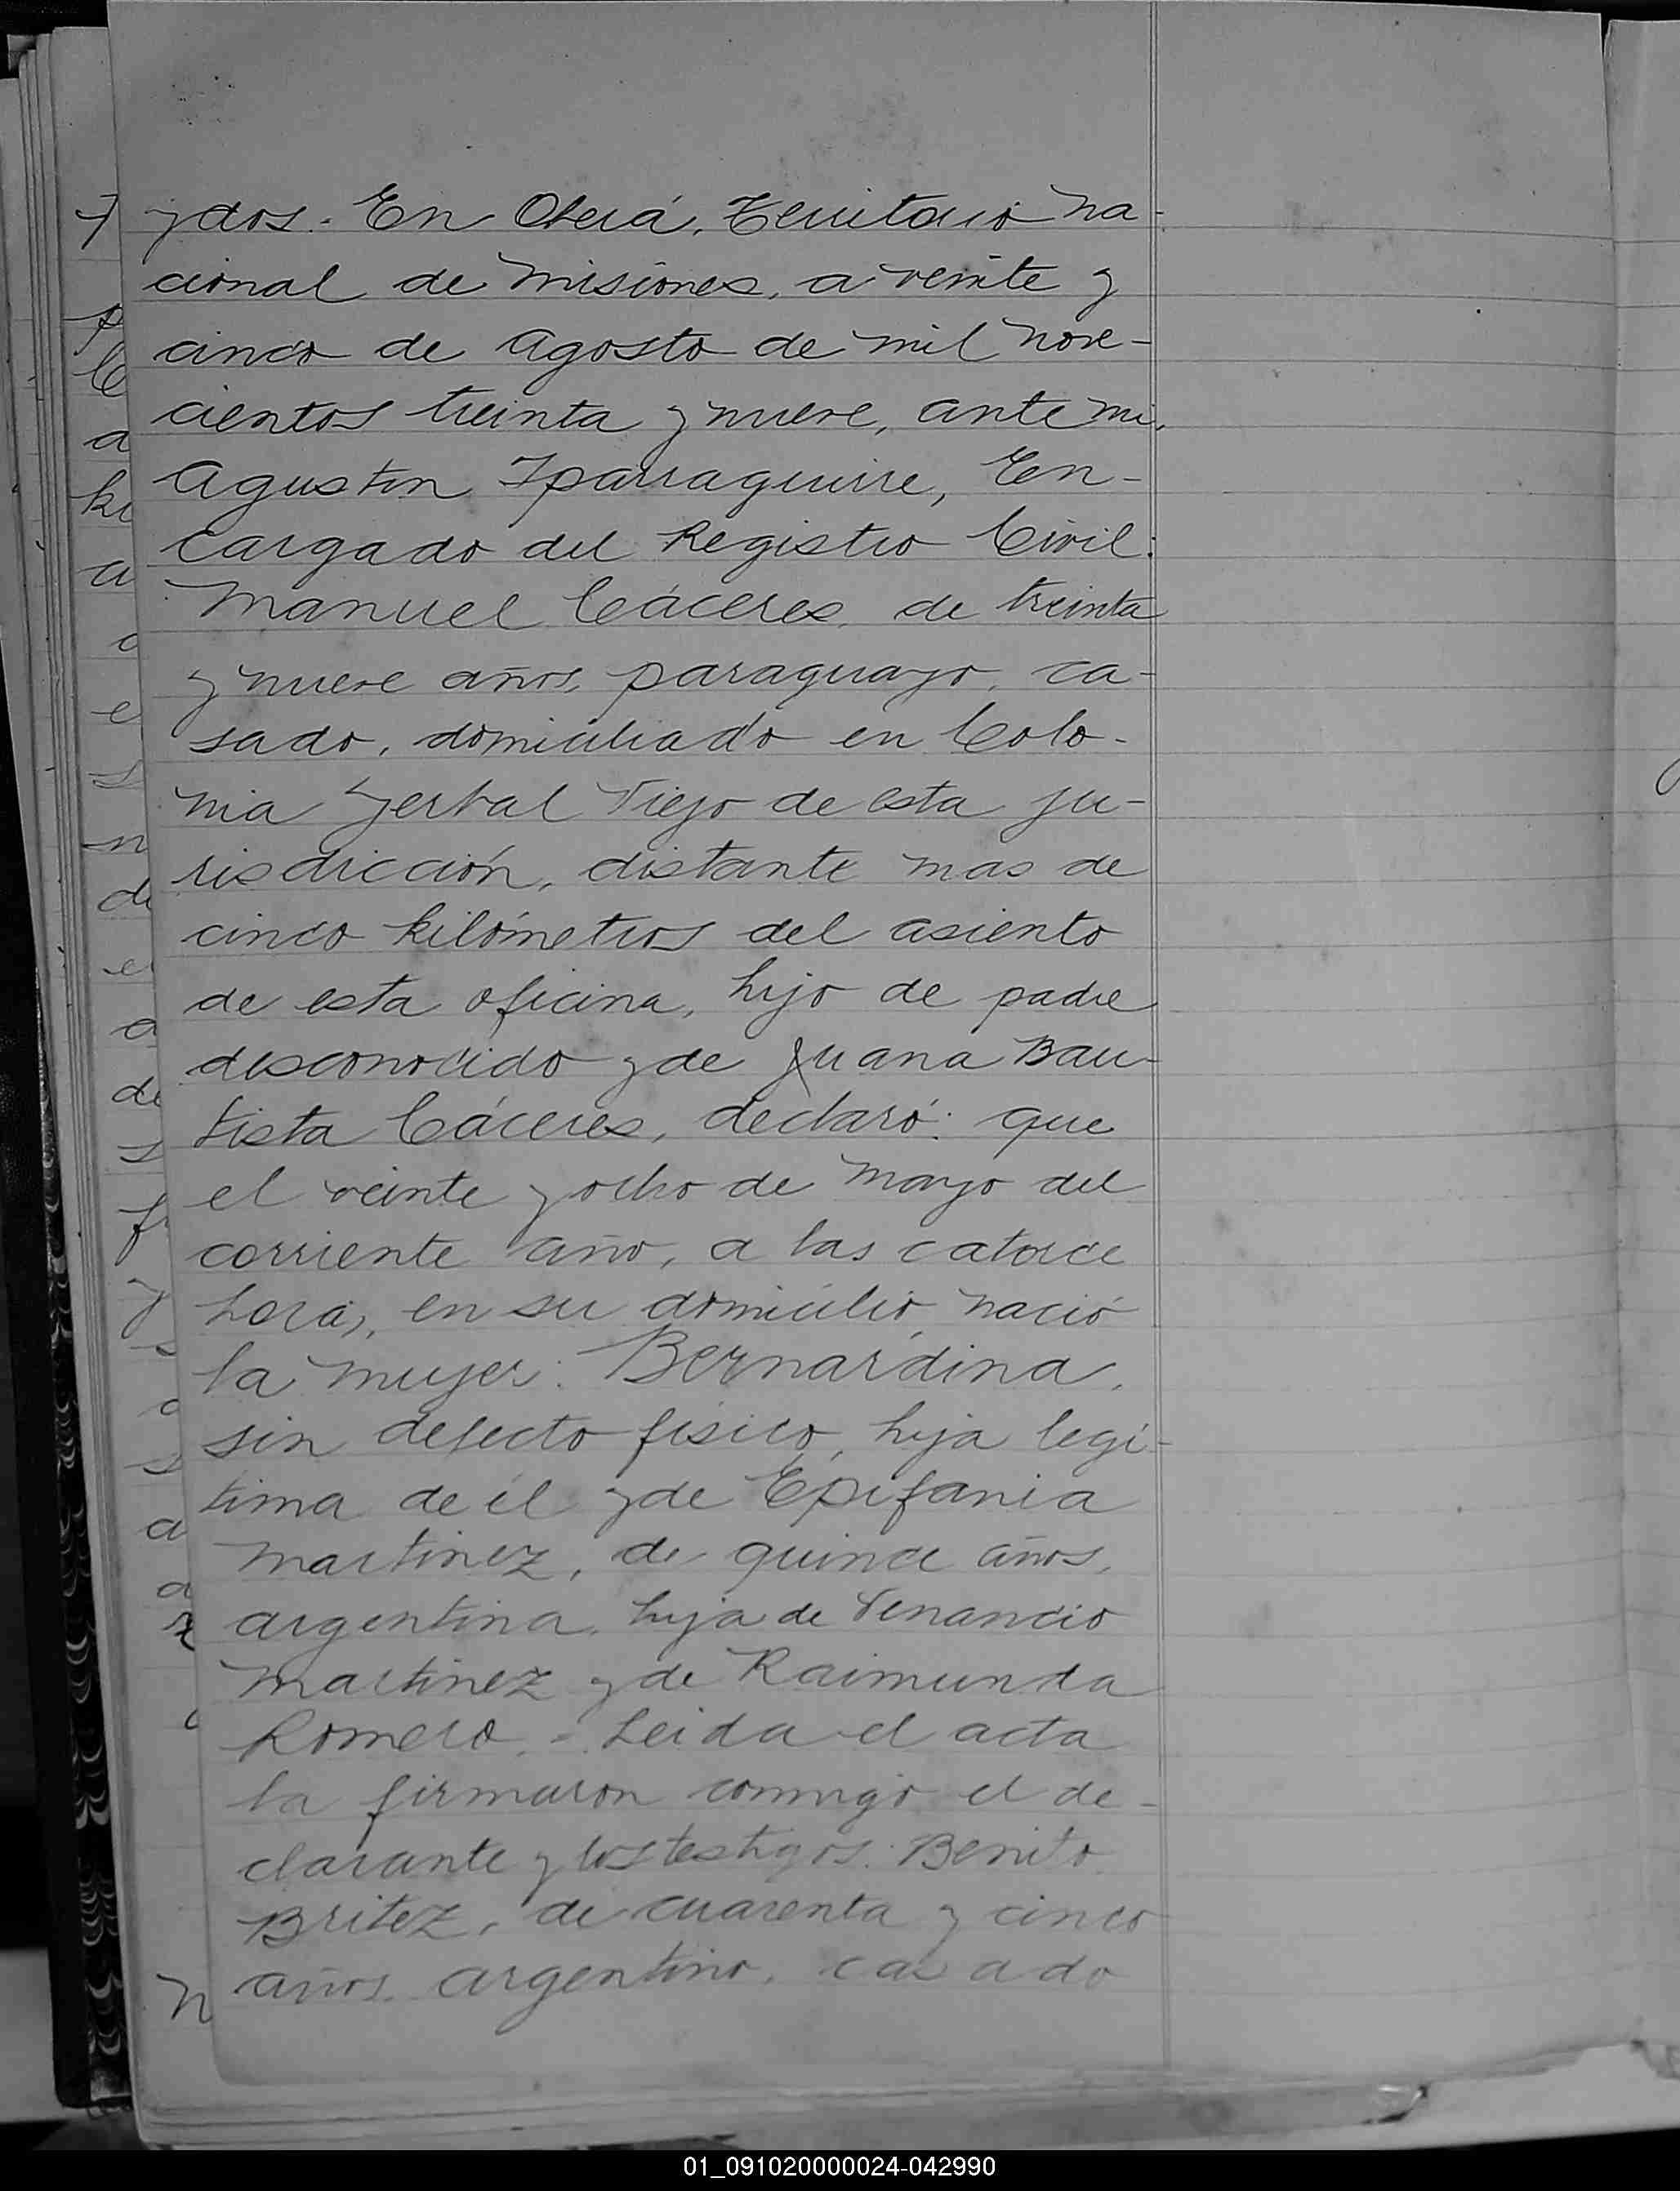 y dos.- En Oberá, Territorio Na-
cional de Misiones, a veinte y
cinco de Agosto de mil nove-
cientos treinta y nueve, ante mi,
Agustin Yparraguirre, En-
cargado del Registro Civil:
Manuel Cáceres, de treinta
y nueve años, paraguayo, ca-
sado, domiciliado en Colo-
nia Yerbal Viejo de esta ju-
risdicción, distante mas de
cinco kilómetros del asiento
de esta oficina, hijo de padre
desconocido y de Juana Bau-
tista Cáceres, declaró: que
el veinte y ocho de Mayo del
corriente año, a las catorce
horas, en su domicilio, nació
la mujer: Bernardina,
sin defecto físico, hija legi-
tima de él y de Epifania
Martinez, de quince años,
argentina, hija de Venancio
Martinez y de Raimunda
Romero.- Leida el acta
la firmaron conmigo el de-
clarante y los testigos: Benito
Britez, de cuarenta y cinco
años, argentino, casado
01_091020000024-042990